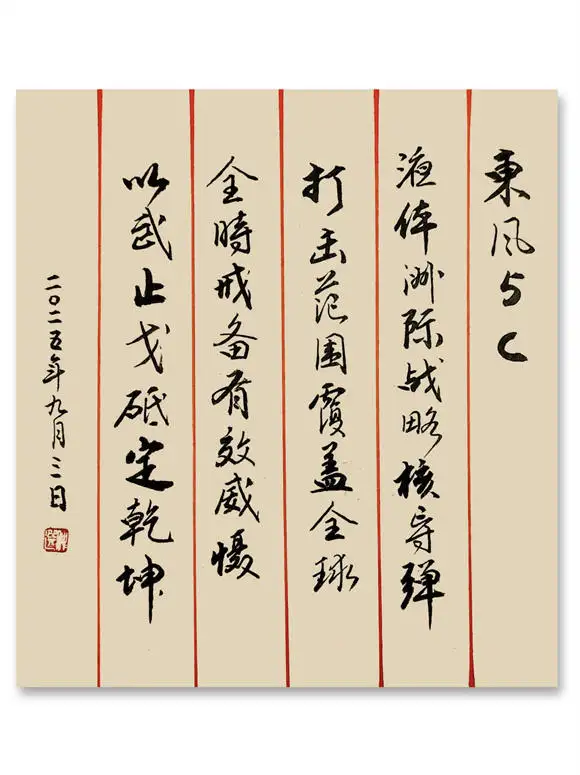 東风5C
液体洲际战略核导弹
打击范围覆盖全球
全時戒备有效威慑
以武止戈砥定乾坤
二〇二五年九月三日